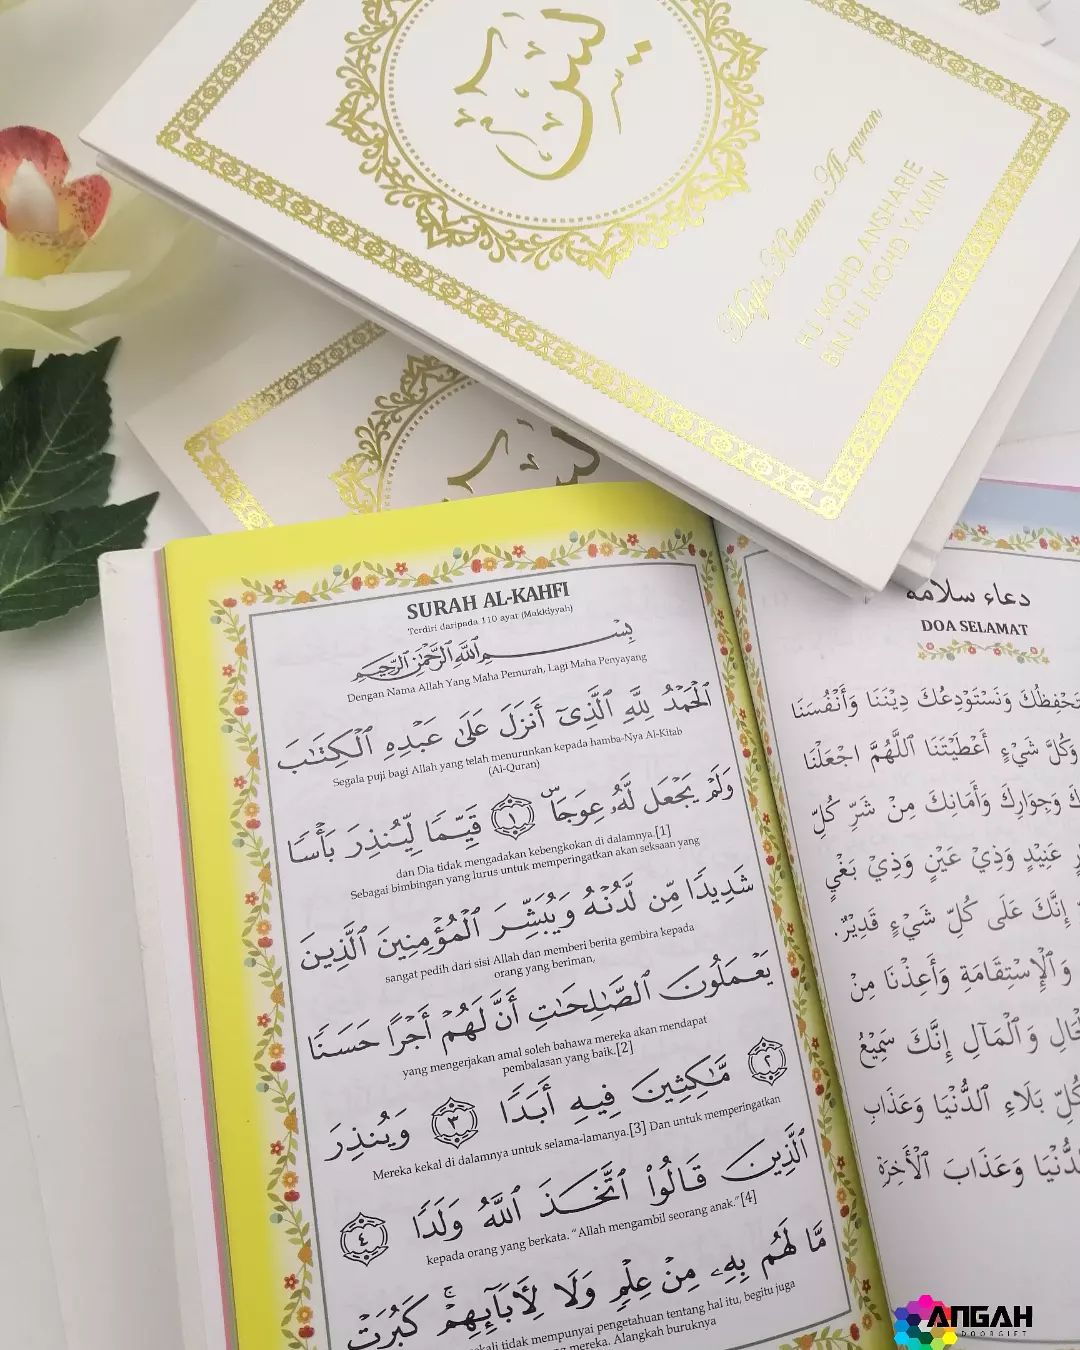 يس
Majlis Khatam Al-quran
HJ MOHD ANSHARIE
BIN HJ MOHD YAMIN
SURAH AL-KAHFI
Terdiri daripada 110 ayat (Makkiyyah)
بِسْمِ اللَّهِ الرَّحْمَٰنِ الرَّحِيمِ
Dengan Nama Allah Yang Maha Pemurah, Lagi Maha Penyayang
ٱلْحَمْدُ لِلَّهِ ٱلَّذِىٓ أَنزَلَ عَلَىٰ عَبْدِهِ ٱلْكِتَٰبَ
Segala puji bagi Allah yang telah menurunkan kepada hamba-Nya Al-Kitab
(Al-Quran)
وَلَمْ يَجْعَل لَّهُۥ عِوَجَاۜ ١ قَيِّمًا لِّيُنذِرَ بَأْسًا
dan Dia tidak mengadakan kebengkokan di dalamnya.[1]
Sebagai bimbingan yang lurus untuk memperingatkan akan seksaan yang
شَدِيدًا مِّن لَّدُنْهُ وَيُبَشِّرَ ٱلْمُؤْمِنِينَ ٱلَّذِينَ
sangat pedih dari sisi Allah dan memberi berita gembira kepada
orang yang beriman,
يَعْمَلُونَ ٱلصَّٰلِحَٰتِ أَنَّ لَهُمْ أَجْرًا حَسَنًا
yang mengerjakan amal soleh bahawa mereka akan mendapat
pembalasan yang baik.[2]
٢ مَّٰكِثِينَ فِيهِ أَبَدًا ٣ وَيُنذِرَ
Mereka kekal di dalamnya untuk selama-lamanya.[3] Dan untuk memperingatkan
ٱلَّذِينَ قَالُوا۟ ٱتَّخَذَ ٱللَّهُ وَلَدًا ٤
kepada orang yang berkata. "Allah mengambil seorang anak."[4]
مَّا لَهُم بِهِۦ مِنْ عِلْمٍ وَلَا لِأَبَآئِهِمْ ۚ كَبُرَتْ
tidak mempunyai pengetahuan tentang hal itu, begitu juga
mereka. Alangkah buruknya
دعاء سلامة
DOA SELAMAT
وَنَسْتَوْدِعُكَ دِيْنَنَا وَأَنْفُسَنَا
وَكُلَّ شَيْءٍ أَعْطَيْتَنَا اَللَّهُمَّ اجْعَلْنَا
وَجِوَارِكَ وَأَمَانِكَ مِنْ شَرِّ كُلِّ
عَنِيْدٍ وَذِيْ عَيْنٍ وَذِيْ بَغْيٍ
إِنَّكَ عَلَى كُلِّ شَيْءٍ قَدِيْرٌ.
وَالْإِسْتِقَامَةِ وَأَعِذْنَا مِنْ
وَالْمَآلِ إِنَّكَ سَمِيْعُ
بَلَاءِ الدُّنْيَا وَعَذَابِ
وَعَذَابَ الْأَخِرَةِ
ANGAH
DOORGIFT